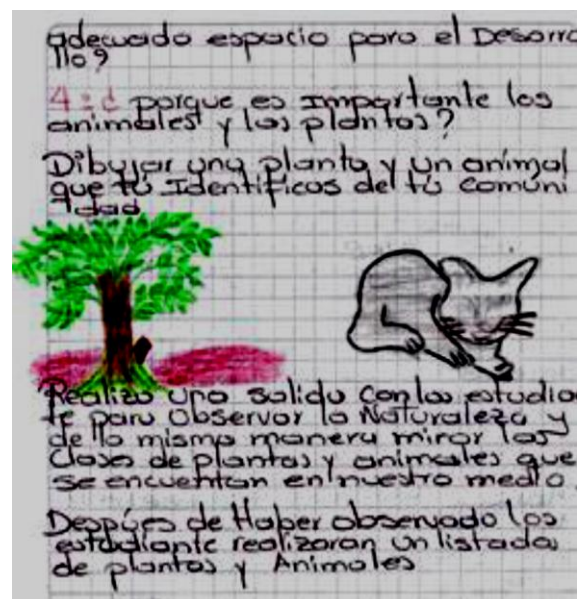 adecuado espacio para el Desarro
llo?
4: ¿ porque es importante los
animales y las plantas?
Dibujar una planta y un animal
que tú Identificas del tú comuni
dad
Realizo una salida con los estudia
te para Observar la Naturaleza y
de la misma manera mirar las
Clases de plantas y animales que
se encuentran en nuestro medio.
Despúes de Haber observado los
estudiante realizaran un listado
de plantas y Animales